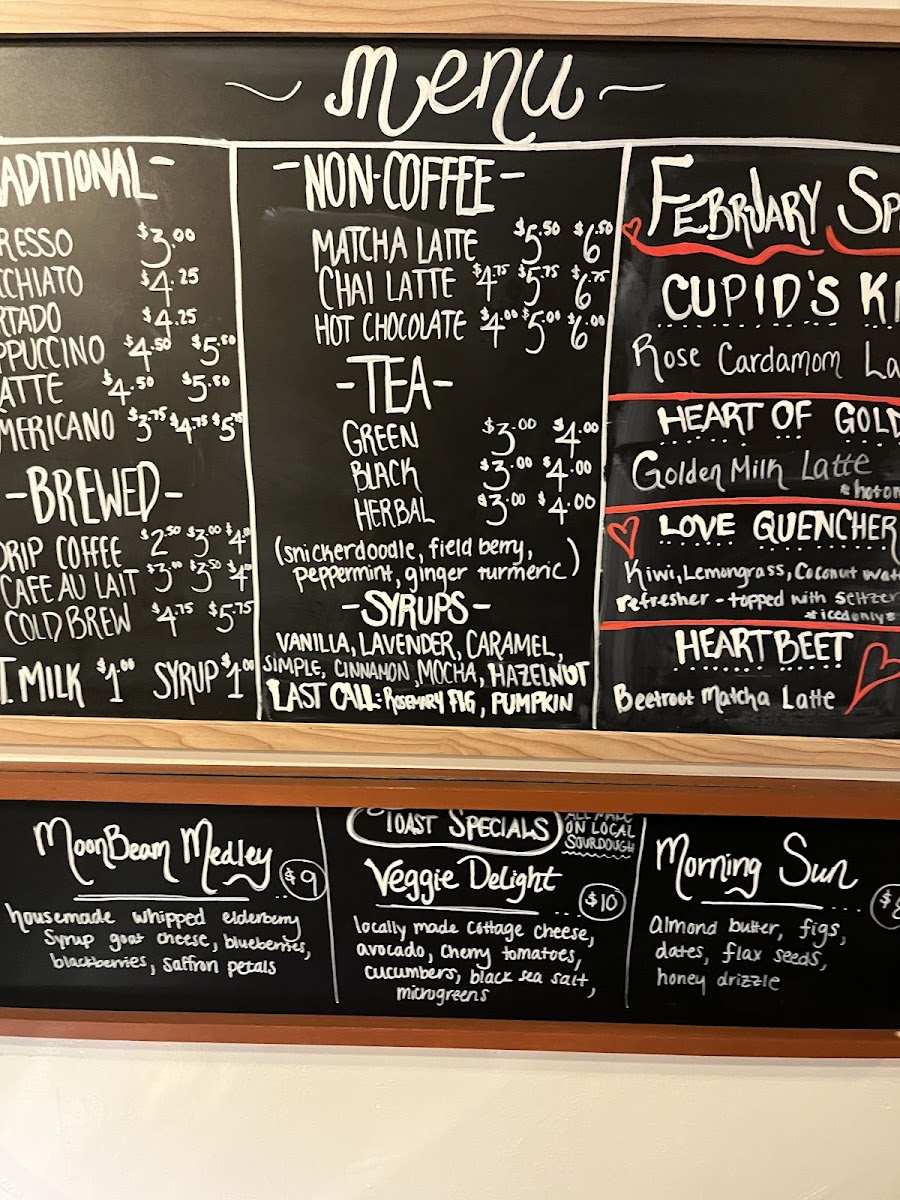 ~ Menu ~
ADITIONAL-
RESSO $3.00
CCHIATO $4.25
RTADO $4.25
PPUCCINO $4.50 $5.50
ATTE $4.50 $5.50
MERICANO $3.75 $4.75 $5.75
-BREWED-
DRIP COFFEE $2.50 $3.00 $4.0
CAFE AU LAIT $3.00 $3.50 $4.0
COLD BREW $4.75 $5.75
T. MILK $1.00 SYRUP $1.00
-NON-COFFEE-
MATCHA LATTE $5.50 $6.50
CHAI LATTE $4.75 $5.75 $6.75
HOT CHOCOLATE $4.00 $5.00 $6.00
-TEA-
GREEN $3.00 $4.00
BLACK $3.00 $4.00
HERBAL $3.00 $4.00
(snickerdoodle, field berry,
peppermint, ginger turmeric)
-SYRUPS-
VANILLA, LAVENDER, CARAMEL,
SIMPLE, CINNAMON, MOCHA, HAZELNUT
LAST CALL: ROSEMARY FIG, PUMPKIN
FEBRUARY SP
CUPID'S KI
Rose Cardamom La
HEART OF GOLD
Golden Milk Latte
*hot on
LOVE QUENCHER
Kiwi, Lemongrass, Coconut wat
refresher - topped with seltzer
*iced only*
HEARTBEET
Beetroot Matcha Latte
MoonBeam Medley $9
housemade whipped elderberry
syrup goat cheese, blueberries,
blackberries, saffron petals
TOAST SPECIALS
ALL MADE
ON LOCAL
SOURDOUGH
Veggie Delight $10
locally made cottage cheese,
avocado, cherry tomatoes,
cucumbers, black sea salt,
microgreens
Morning Sun $
almond butter, figs,
dates, flax seeds,
honey drizzle